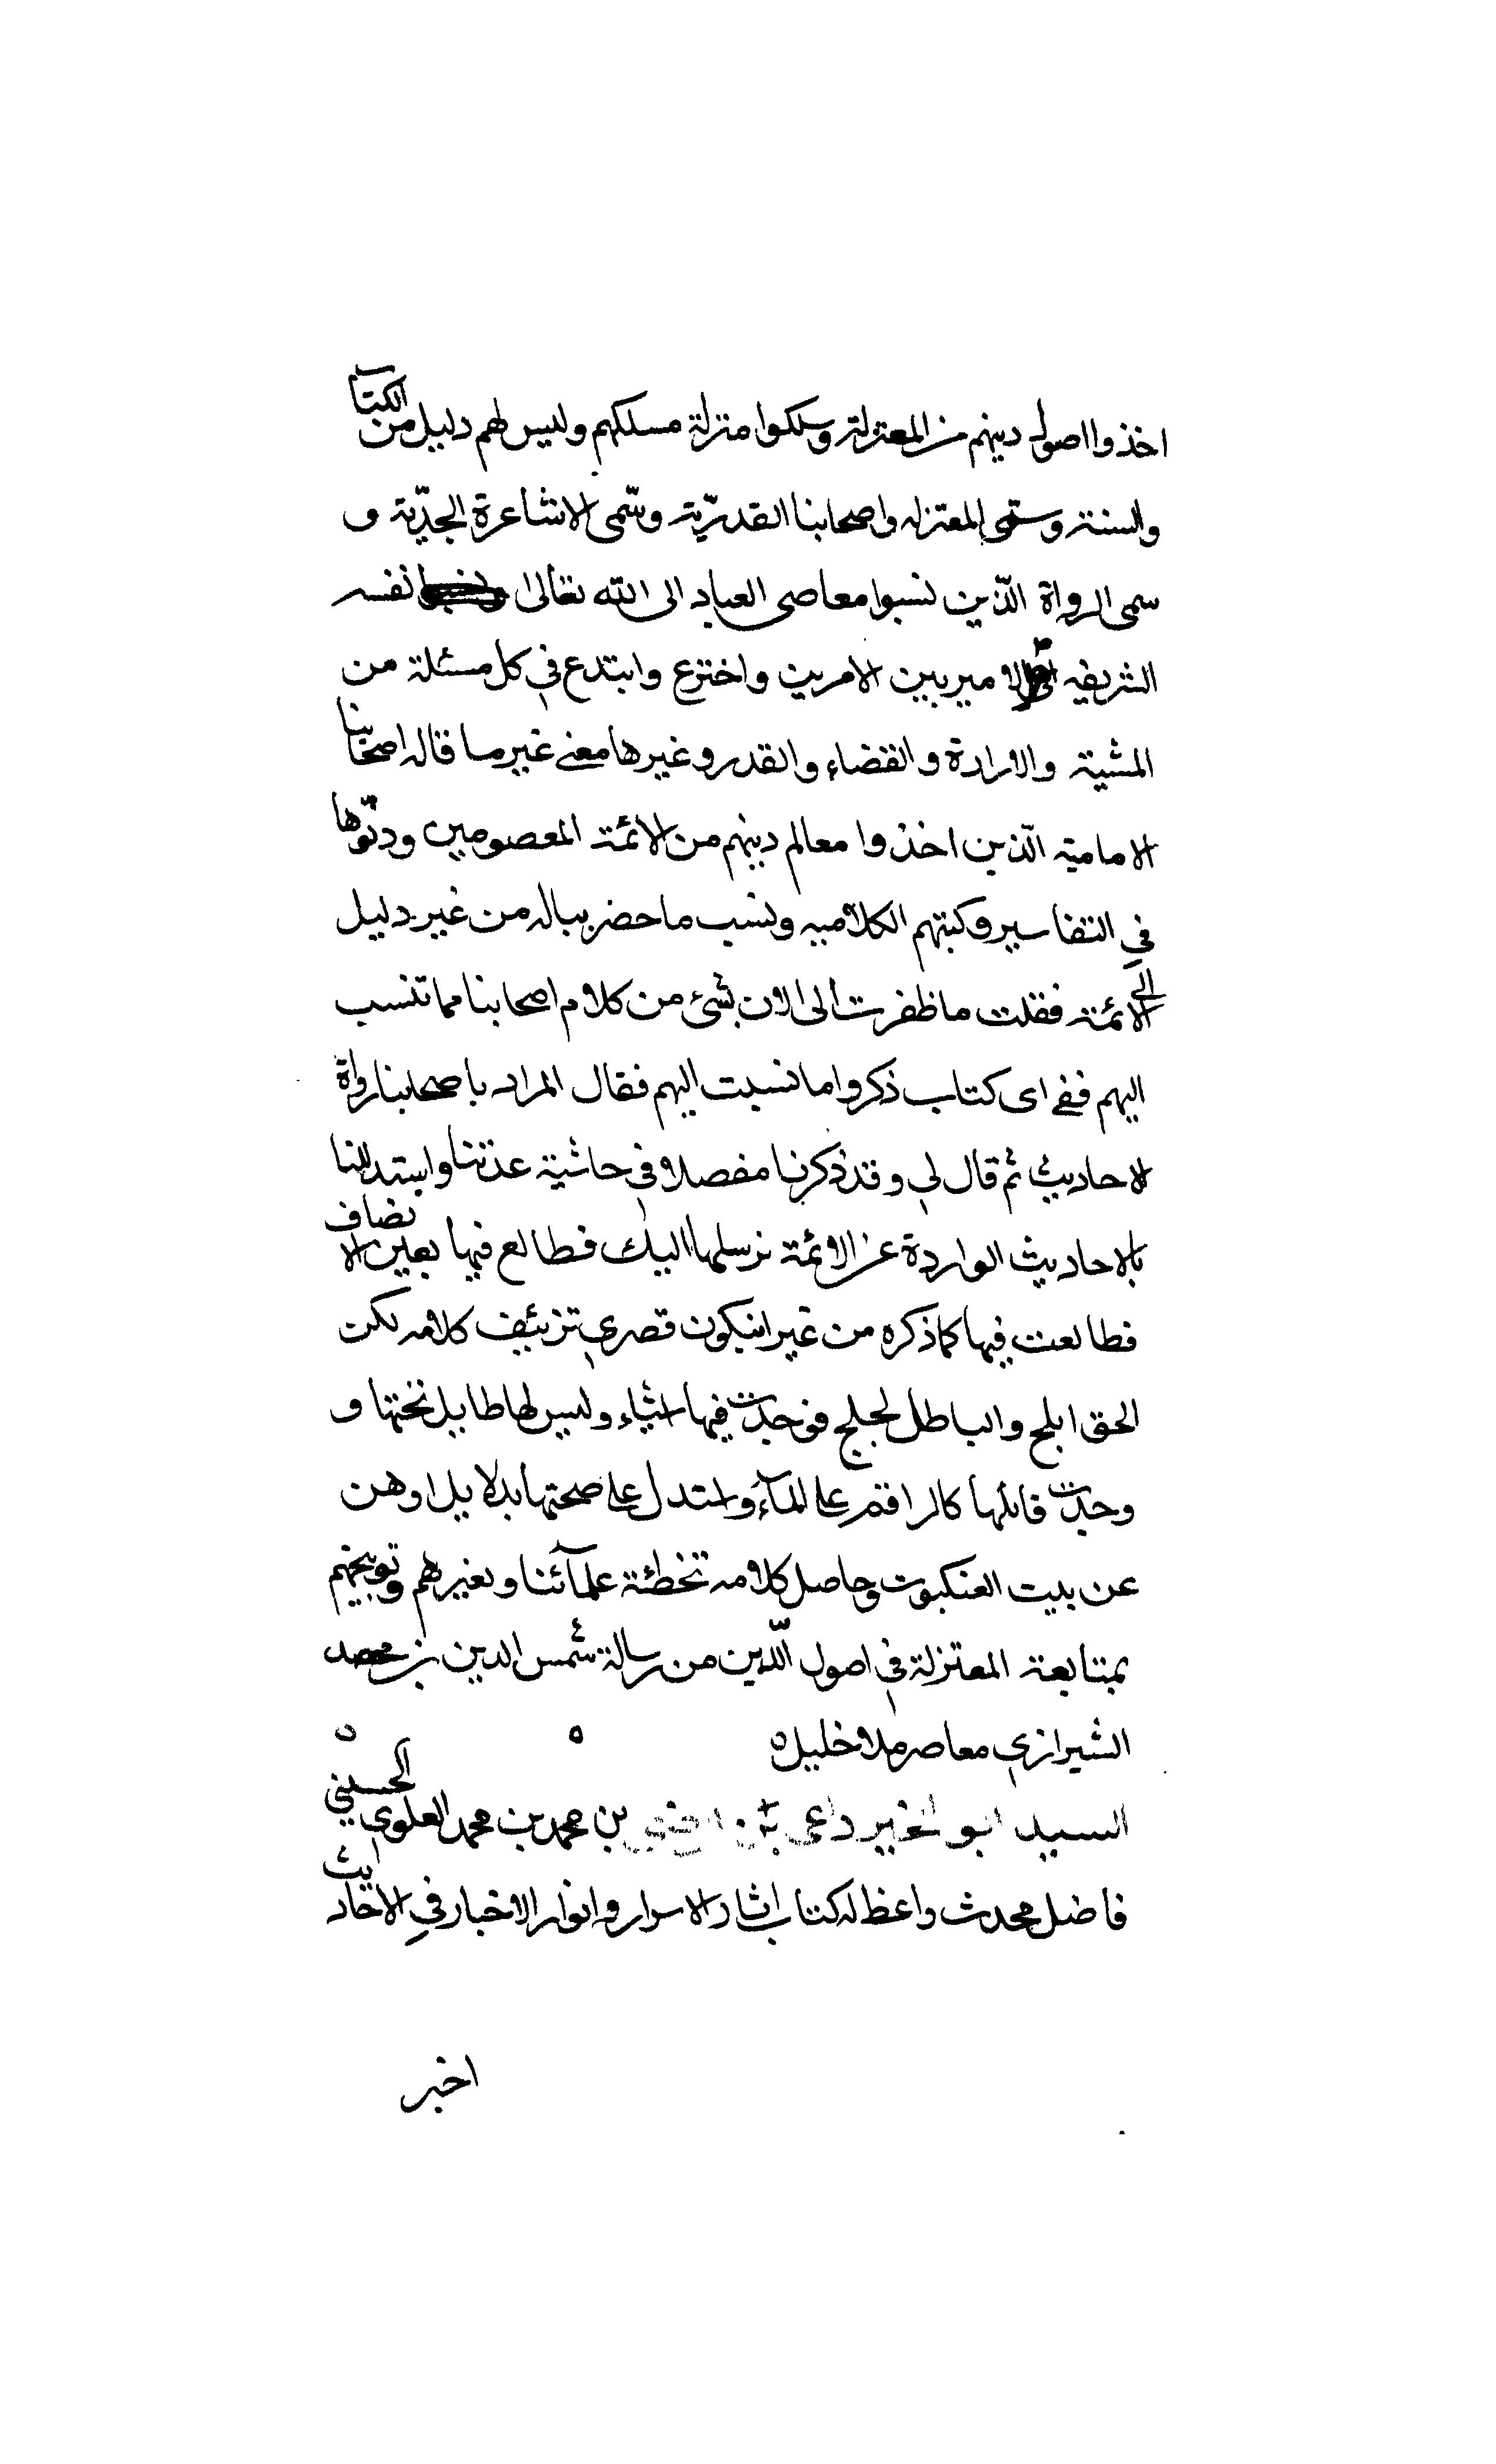 اخذوا اصول دينهم من المعتزلة وسلكوا منزلة مسلكهم وليس لهم دليل من الكتاب
والسنة وسمّى المعتزله واصحابنا القدريّة وسمّى الاشاعرة الجبريّة و
سمى الرواة الّذين نسبوا معاصى العباد الى الله تعالى نفسه
الشريفه الامير بين الامرين واخترع وابتدع في كل مسئلة من
المشية والارادة والقضاء والقدر وغيرها معنى غير ما قاله اصحابنا
الامامية الّذين اخذوا معالم دينهم من الائمة المعصومين ودوّنوها
في التفاسير وكتبهم الكلاميه ونسب ما حضر بباله من غير دليل
الى الائمة فقلت ما ظفرت الى الان بشئ من كلام اصحابنا مما تنسب
اليهم ففى اى كتاب ذكروا ما نسبت اليهم فقال المراد باصحابنا رواة
الاحاديث ثم قال لي وقد ذكرنا مفصلا في حاشية عدّتنا واستدللنا
بالاحاديث الواردة عن الائمة نرسلها اليك فطالع فيها بعين الانضاف
فطالعت فيها كما ذكره من غير ان يكون قصدي تزئيف كلامه لكن
الحق ابلج والباطل لجلج فوجدت فيها اشياء وليس لها طايل تحتها و
وجدت قائلها كالراقم على المآء واستدل على صحتها بدلايل اوهن
عن بيت العنكبوت وحاصل كلامه تخطئة علمآئنا وغيرهم وتوبيخهم
بمتابعة المعتزلة في اصول الّدين من رسالة شمس الدين بن محمد
الشيرازي معاصر ملا خليل ه
السيد ابو الخير داعى بن بن محمد بن محمد العلوي الحسيني
فاضل محدث واعظ له كتاب اثار الاسرار وانوار الاخبار في الاحاديث
اخبر